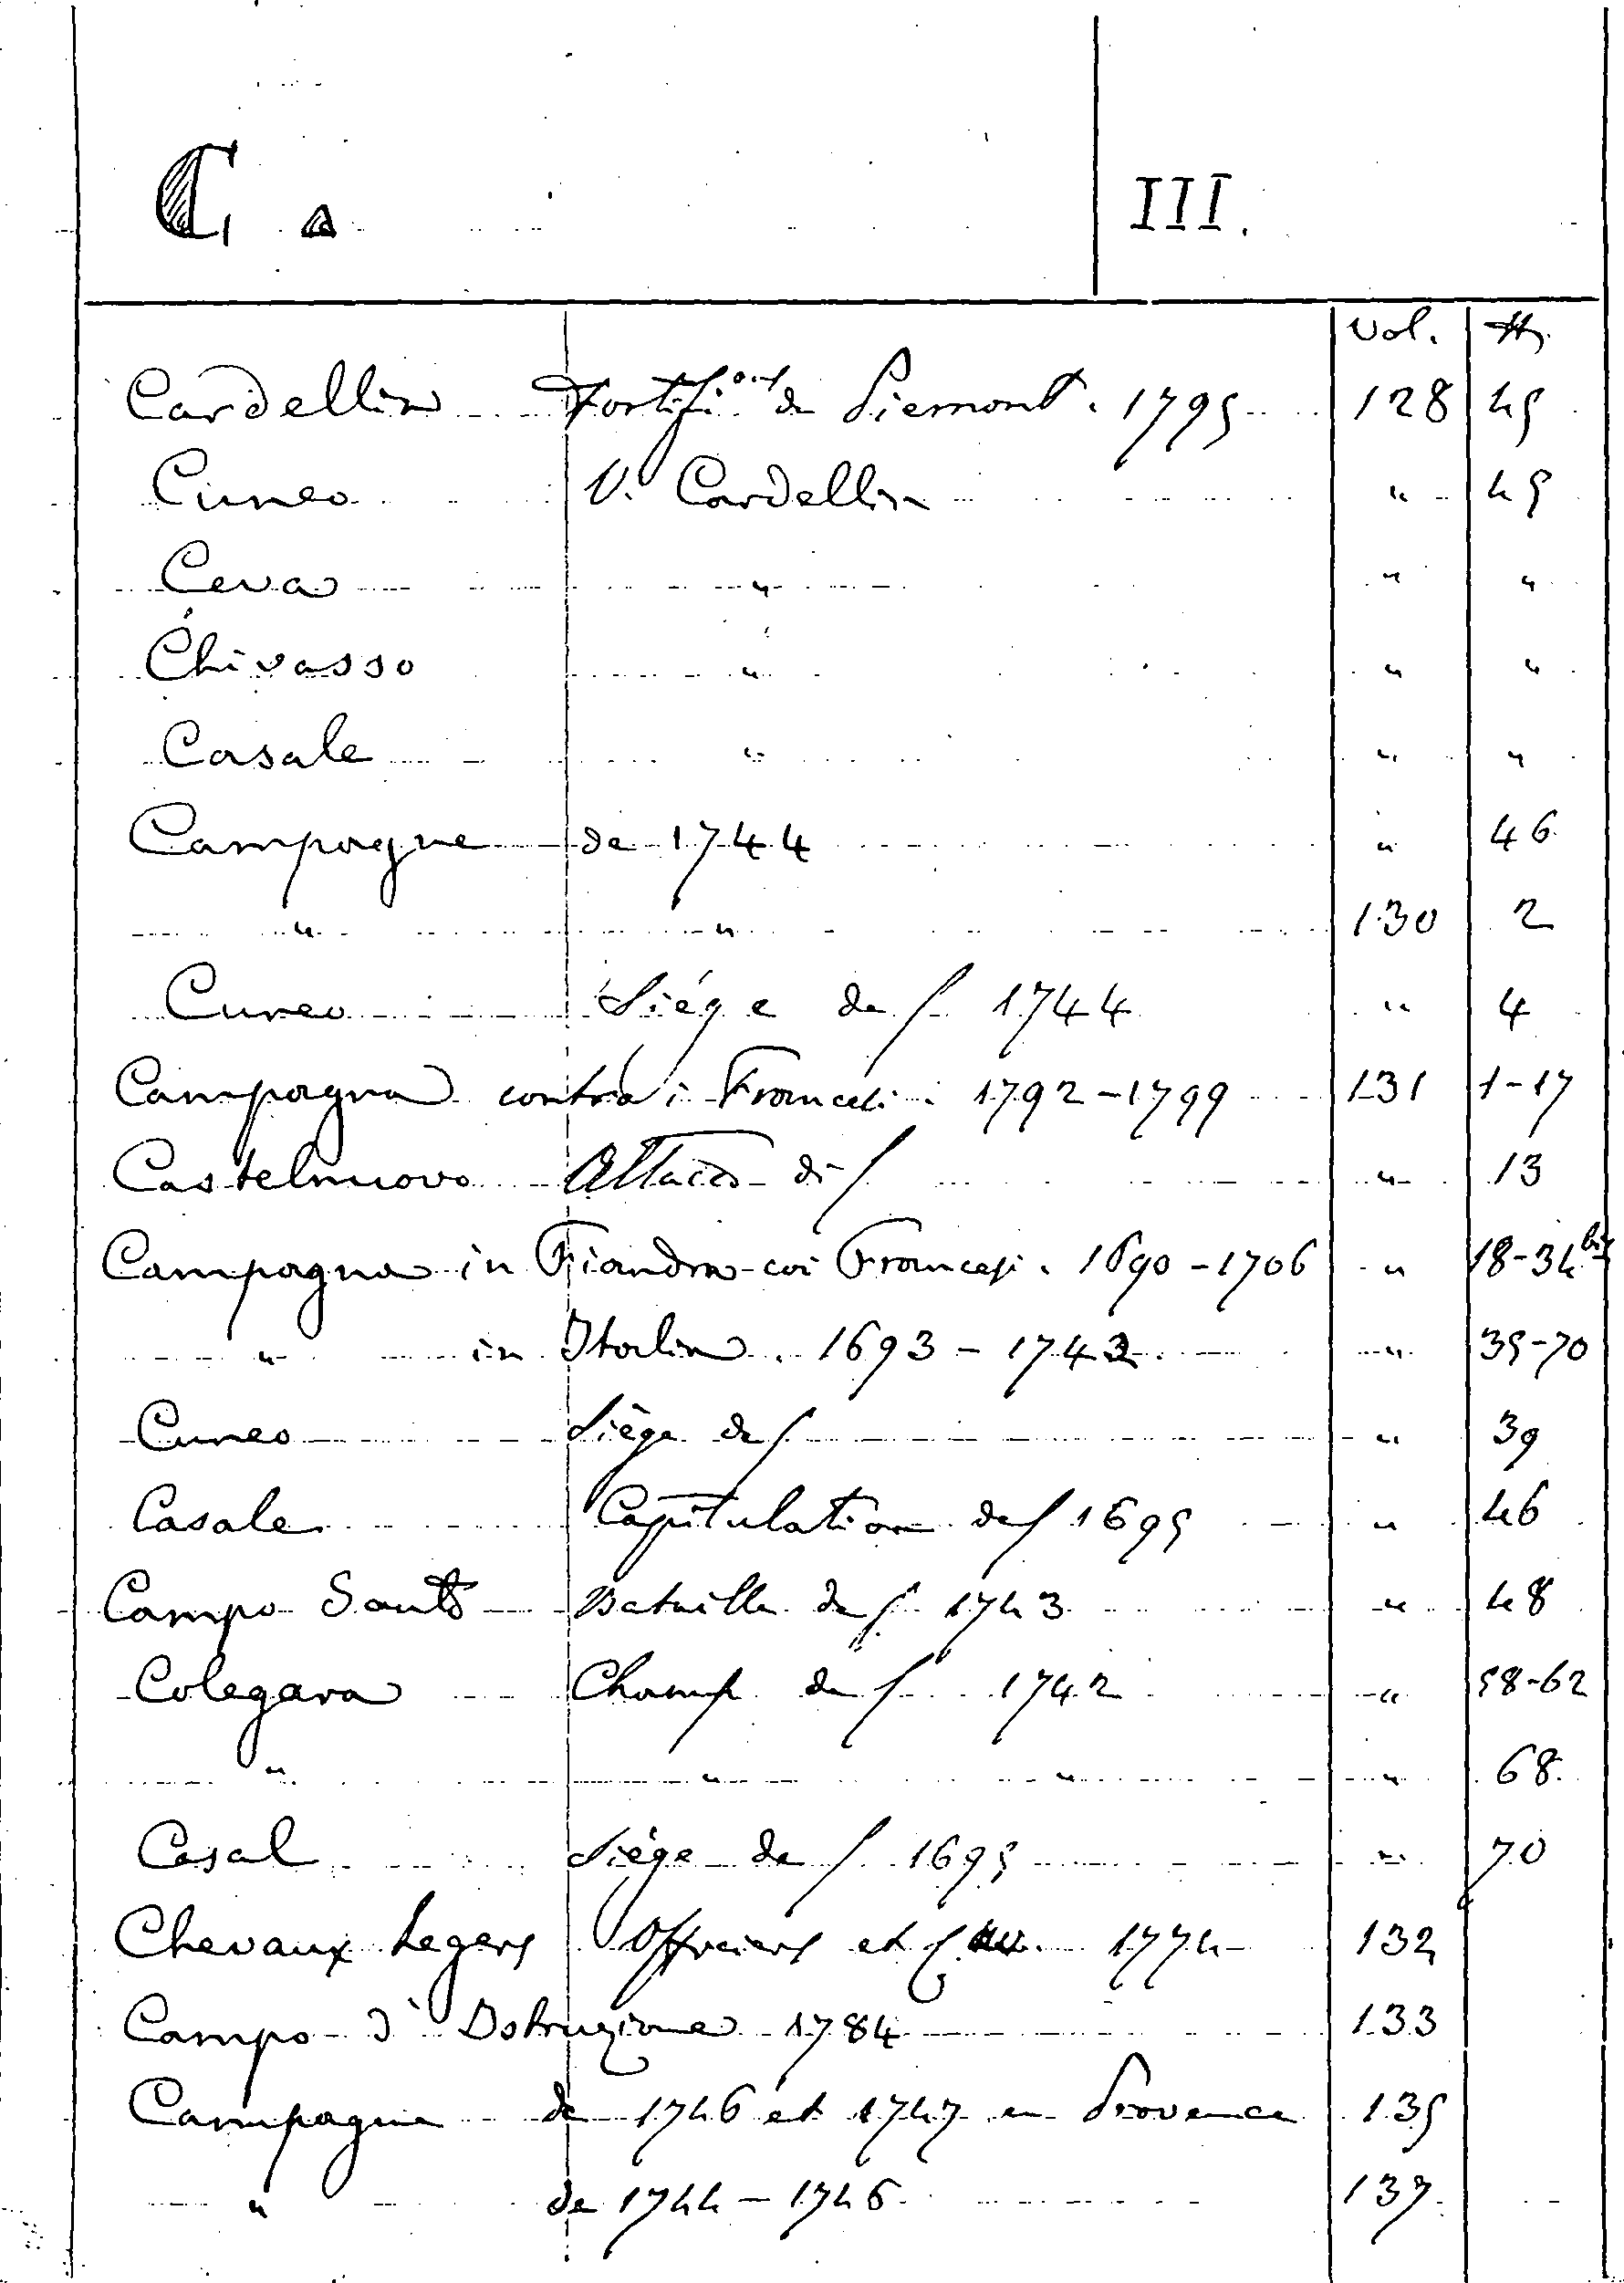 C a III.
Vol. №
Cardellin Fortifi.ons de Piemont. 1795 128 45
Cuneo V. Cardellin " 45
Ceva " " "
Chivasso " " "
Casale " " "
Campagne de 1744 " 46
" " 130 2
Cuneo Siége de f 1744 " 4
Campagna contro i Francesi. 1792-1799 131 1-17
Castelnuovo Attacco di f " 13
Campagna in Fiandra coi Francesi. 1690-1706 " 18-34 bis
" in Italia. 1693-1743 " 35-70
Cuneo Siège de f " 39
Casale Capitulation de f 1695 " 46
Campo Santo Bataille de f 1743 " 48
Colegara Champ de f 1742 " 58-62
" " " " 68
Casal Siège de f 1695 " 70
Chevaux Legers Officiers et 1774 132
Campo d'Istruzione 1784 133
Campagne de 1746 et 1747 en Provence 135
" de 1744-1746 137